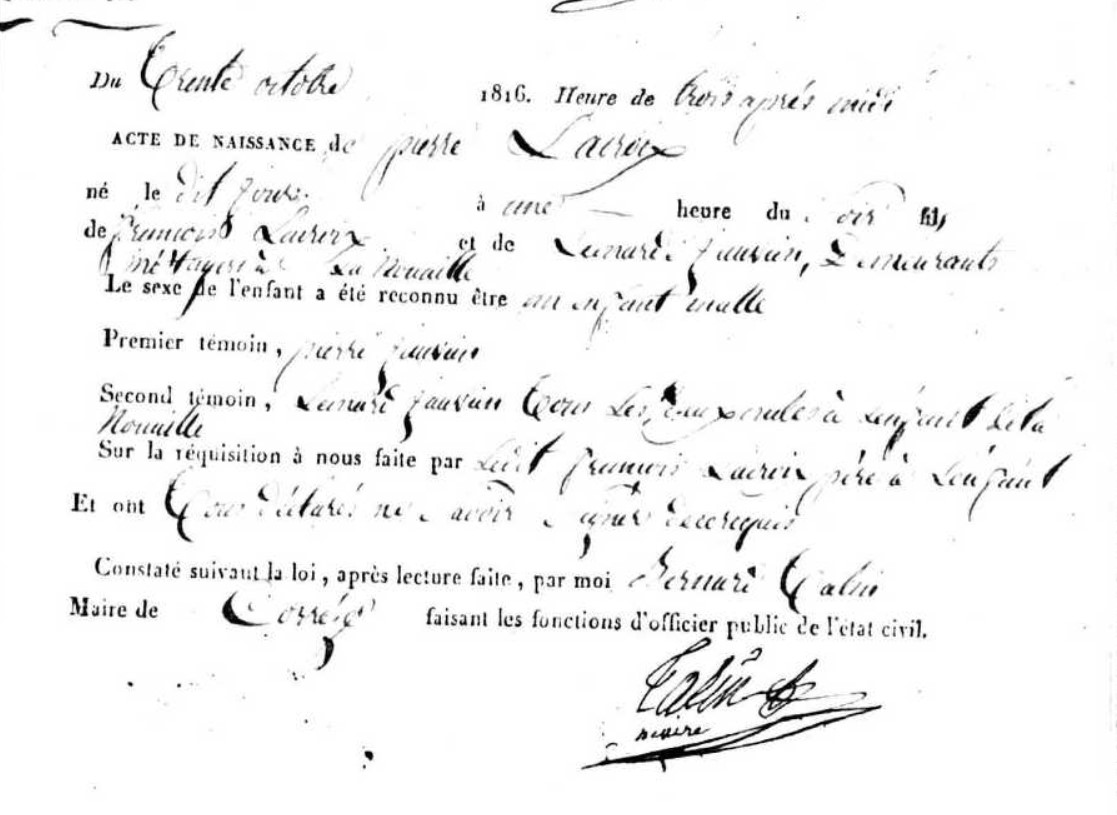 Du Trente octobre 1816. Heure de trois après midi
ACTE DE NAISSANCE de pierre Lacroix
né le dit jour à une heure du soir fils
de françois Lacroix et de Lenarde jauvin, Demeurants
métayers à La Nouaille
Le sexe de l'enfant a été reconnu être un enfant malle
Premier témoin, pierre jauvin
Second témoin, Lenard jauvin Tous Les deux à Lenfant de la
Nouaille
Sur la réquisition à nous faite par Ledit françois Lacroix père à Lenfant
Et ont Tous déclarés ne savoir signer de ce requis
Constaté suivant la loi, après lecture faite, par moi Bernard
Maire de Corrèze faisant les fonctions d'officier public de l'état civil.
maire